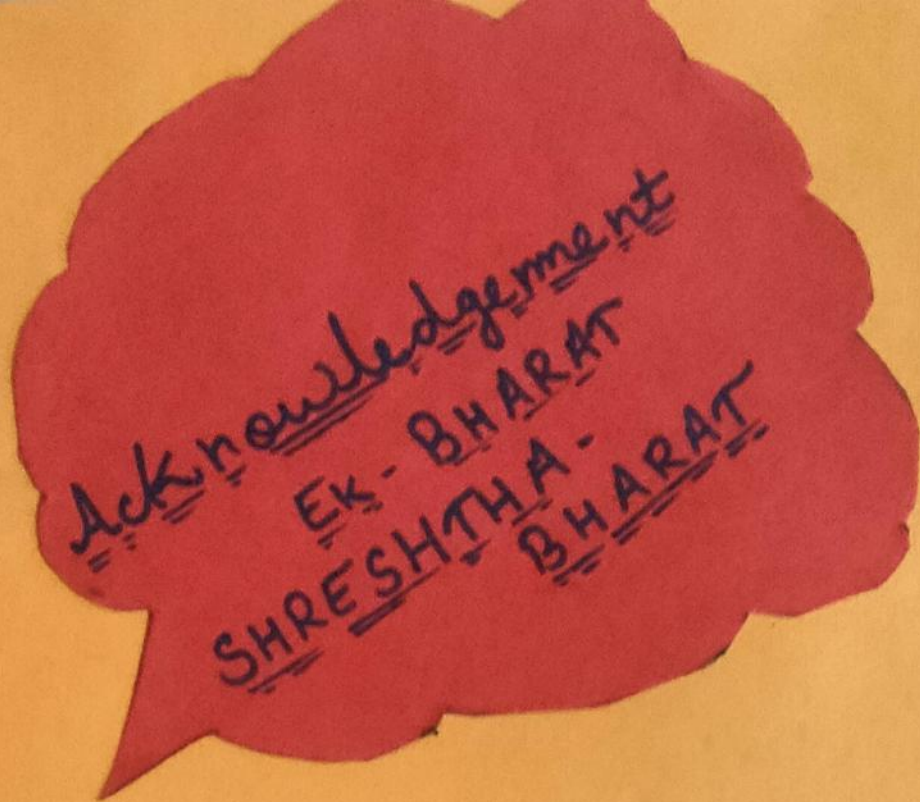 Acknowledgement
EK-BHARAT
SHRESHTHA-
BHARAT